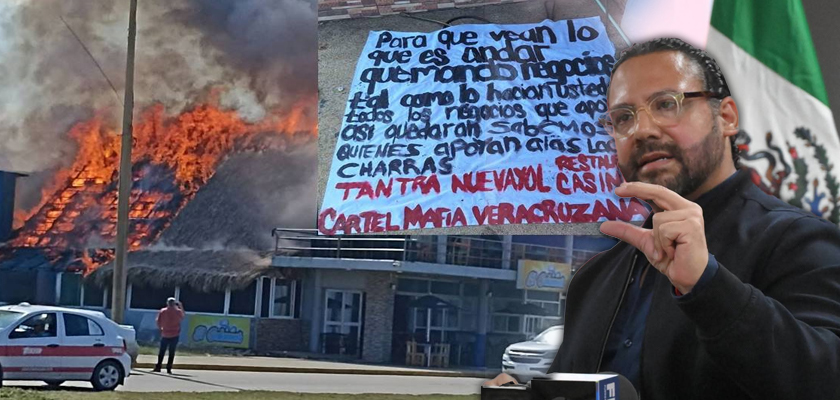 Para que vean lo
que es andar
quemando negocios
tal como lo hacian usted
todos los negocios que apo
asi quedaran Sabemos
QUIENES aporan alas Lac
CHARRAS RESTAU
TANTRA NUEVAYOL CASIN
CARTEL MAFIA VERACRUZANA